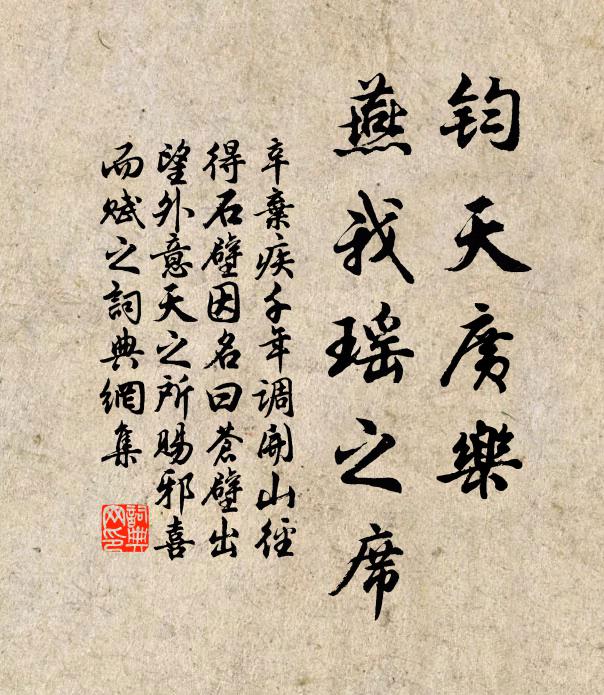 钧天廣樂
燕我瑶之席
辛棄疾千年调開山徑
得石壁因名曰蒼壁出
望外意天之所賜邪喜
而赋之詞典網集
詞典網印